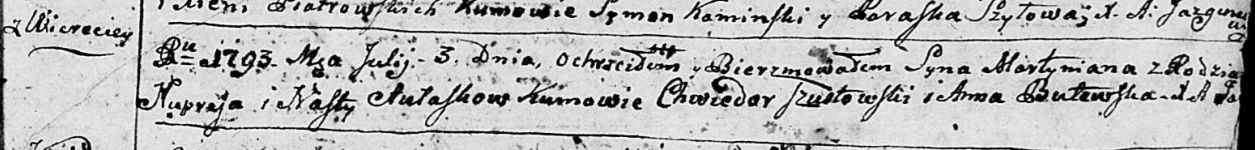 i Xieni Piotrowskich Kumowie Symon Kaminski y Paraska Szyłowa, X. A.
z Wiereciey
Ru 1793. Mca Julij. 3. Dnia, ochrzciłem y Bierzmowałem Syna Martyniana z Rodzi
Kupreja i Nasty Aułaskow Kumowie Chwiedor Szustowski i Anna Butewska. X A